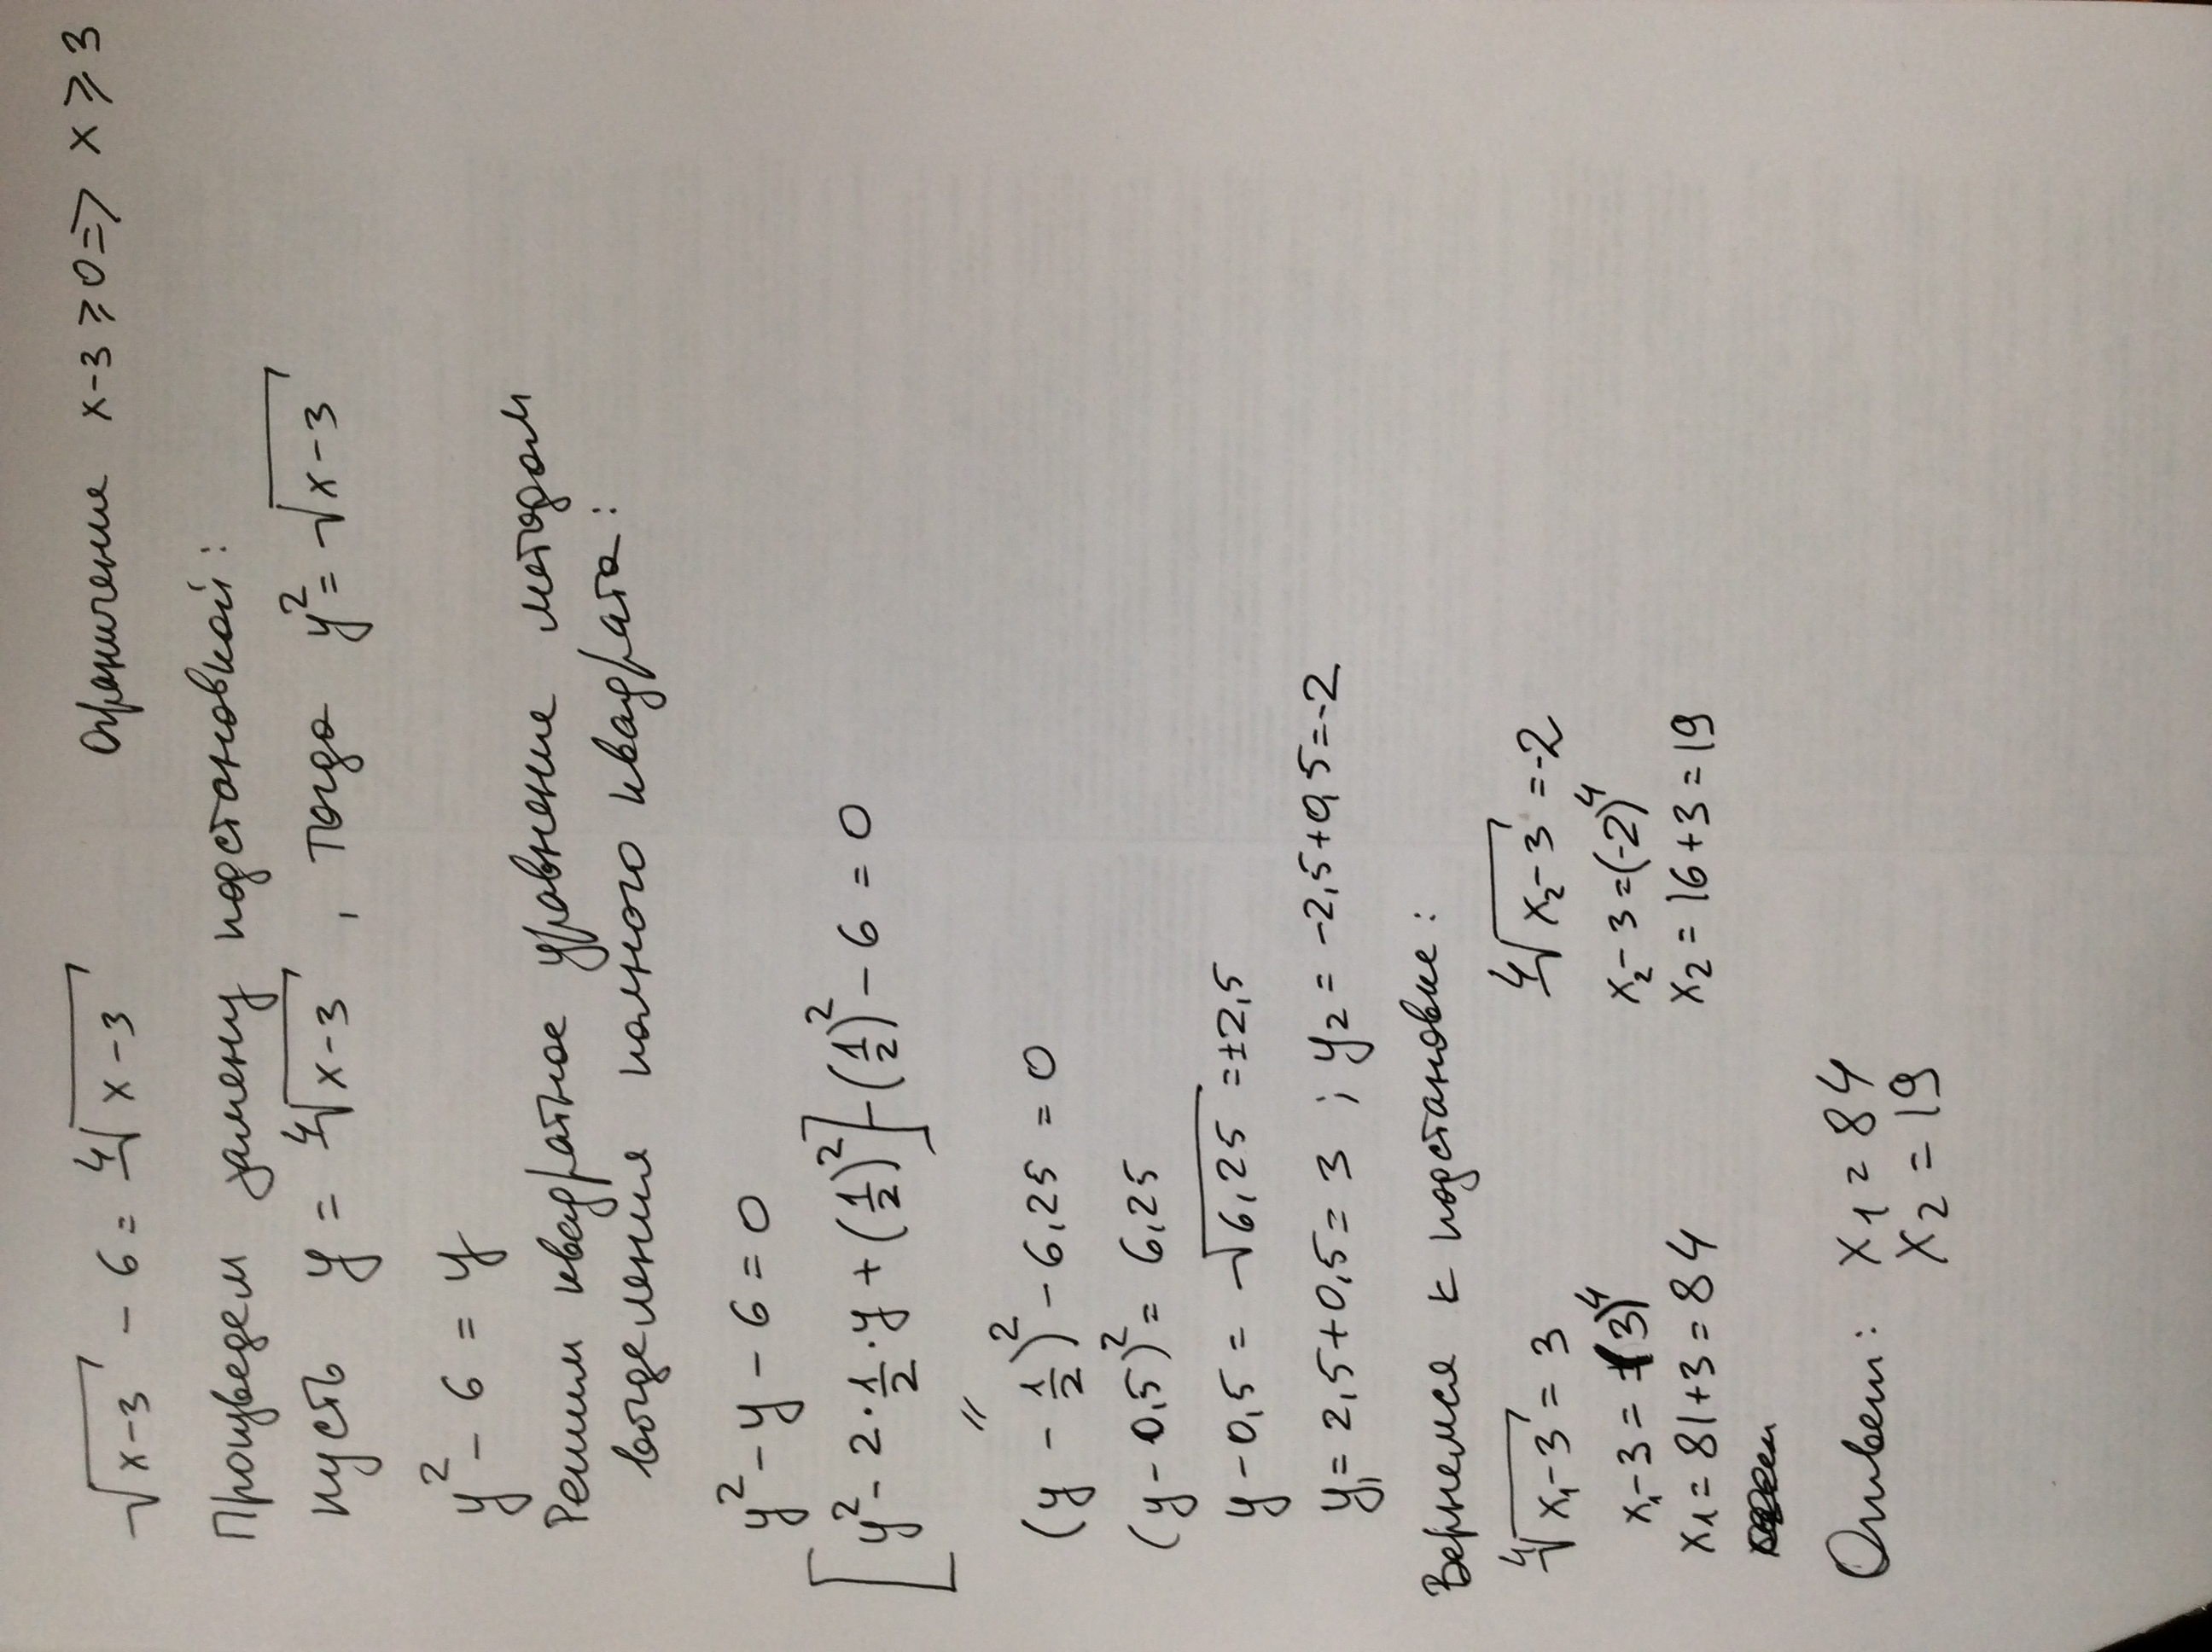 √x-3 - 6 = ∜x-3 ограничение x-3⩾0=> x⩾3
Произведем замену подстановкой:
пусть y = ∜x-3 , тогда y² = √x-3
y² - 6 = y
Решим квадратное уравнение методом
выделения полного квадрата:
y² - y - 6 = 0
[y² - 2·1/2·y + (1/2)²] - (1/2)² - 6 = 0
"
(y - 1/2)² - 6,25 = 0
(y - 0,5)² = 6,25
y - 0,5 = √6,25 = ±2,5
y₁ = 2,5+0,5 = 3 ; y₂ = -2,5+0,5=-2
Вернемся к подстановке:
∜x₁-3 = 3 ∜x₂-3 =-2
x₁-3 = (3)⁴ x₂-3=(-2)⁴
x₁ = 81+3=84 x₂ = 16+3=19
Ответ: x₁ = 84
x₂ = 19